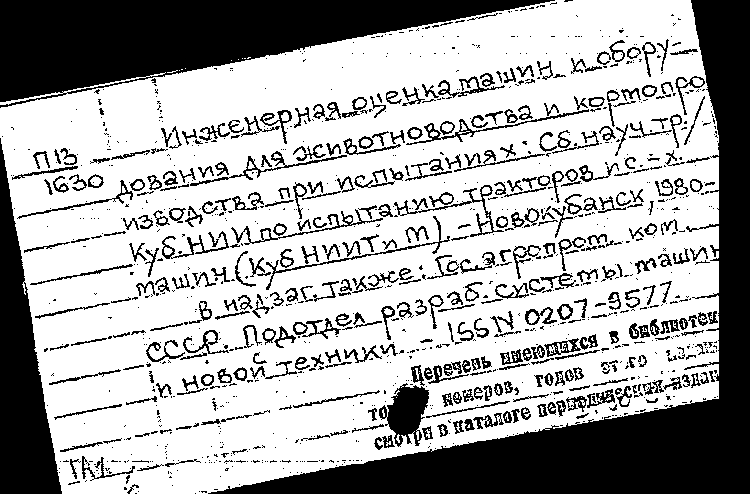 Инженерная оценка машин и обору-
П13
1630
дования для животноводства и кормопро
изводства при испытаниях: Сб. науч. тр./
Куб. НИИ по испытанию тракторов и с.-х.
машин (КубНИИТиМ). - Новокубанск, 1980-
В надзаг. также: Гос. агропром. ком.
СССР. Подотдел разраб. системы машин
и новой техники. - ISSN 0207-9577.
Перечень имеющихся в библиотеке
номеров, годов этого издания
смотри в каталоге периодических издан